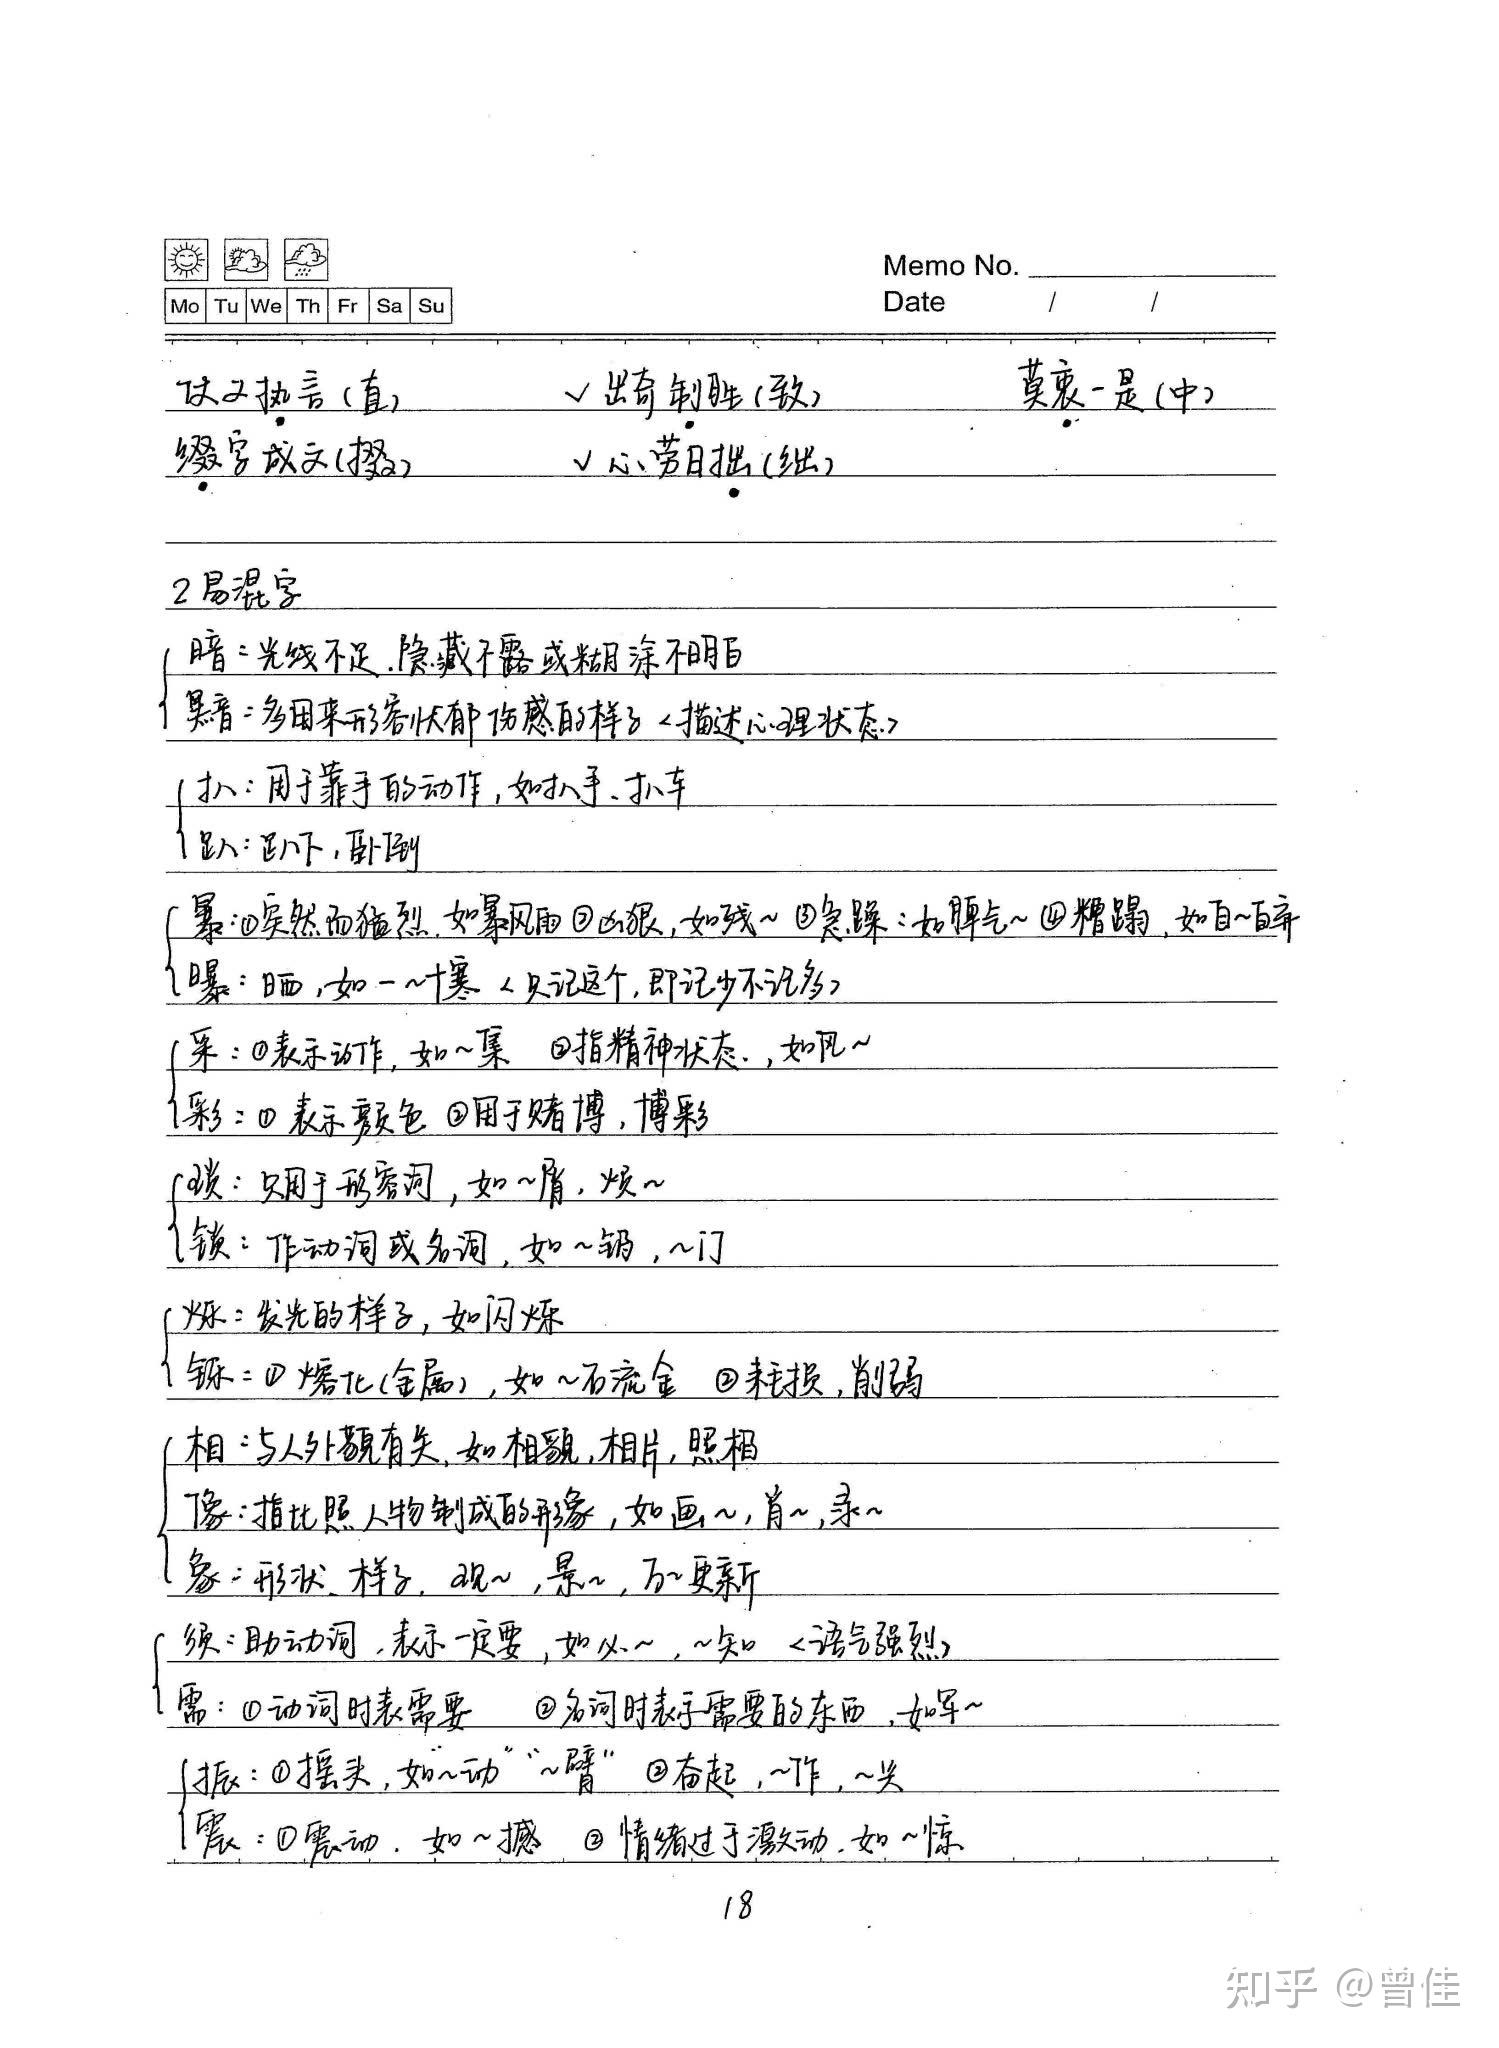 Memo No.
Mo Tu We Th Fr Sa Su
Date / /
仗义执言(直) ✓出奇制胜(致) 莫衷一是(中)
缀字成文(掇) ✓心劳日拙(绌)
2易混字
暗:光线不足、隐藏不露或糊涂不明白
黯:多用来形容忧郁伤感的样子<描述心理状态>
扒:用于靠手的动作,如扒手、扒车
趴:趴下,卧倒
暴:①突然而猛烈,如暴风雨②凶狠,如残~③急躁:如脾气~④糟蹋,如自~自弃
曝:晒,如一~十寒<只记这个,即记少不记多>
采:①表示动作,如~集 ②指精神状态,如风~
彩:①表示颜色 ②用于赌博,博彩
琐:只用于形容词,如~屑,烦~
锁:作动词或名词,如~钥,~门
烁:发光的样子,如闪烁
铄:①熔化(金属),如~石流金 ②耗损,削弱
相:与人外貌有关,如相貌,相片,照相
像:指比照人物制成的形象,如画~,肖~,录~
象:形状、样子,现~,景~,万~更新
须:助动词,表示一定要,如必~,~知 <语气强烈>
需:①动词时表需要 ②名词时表示需要的东西,如军~
振:①摇头,如“~动”“~臂” ②奋起,~作,~兴
震:①震动,如~撼 ②情绪过于激动,如~惊
18
知乎 @曾佳